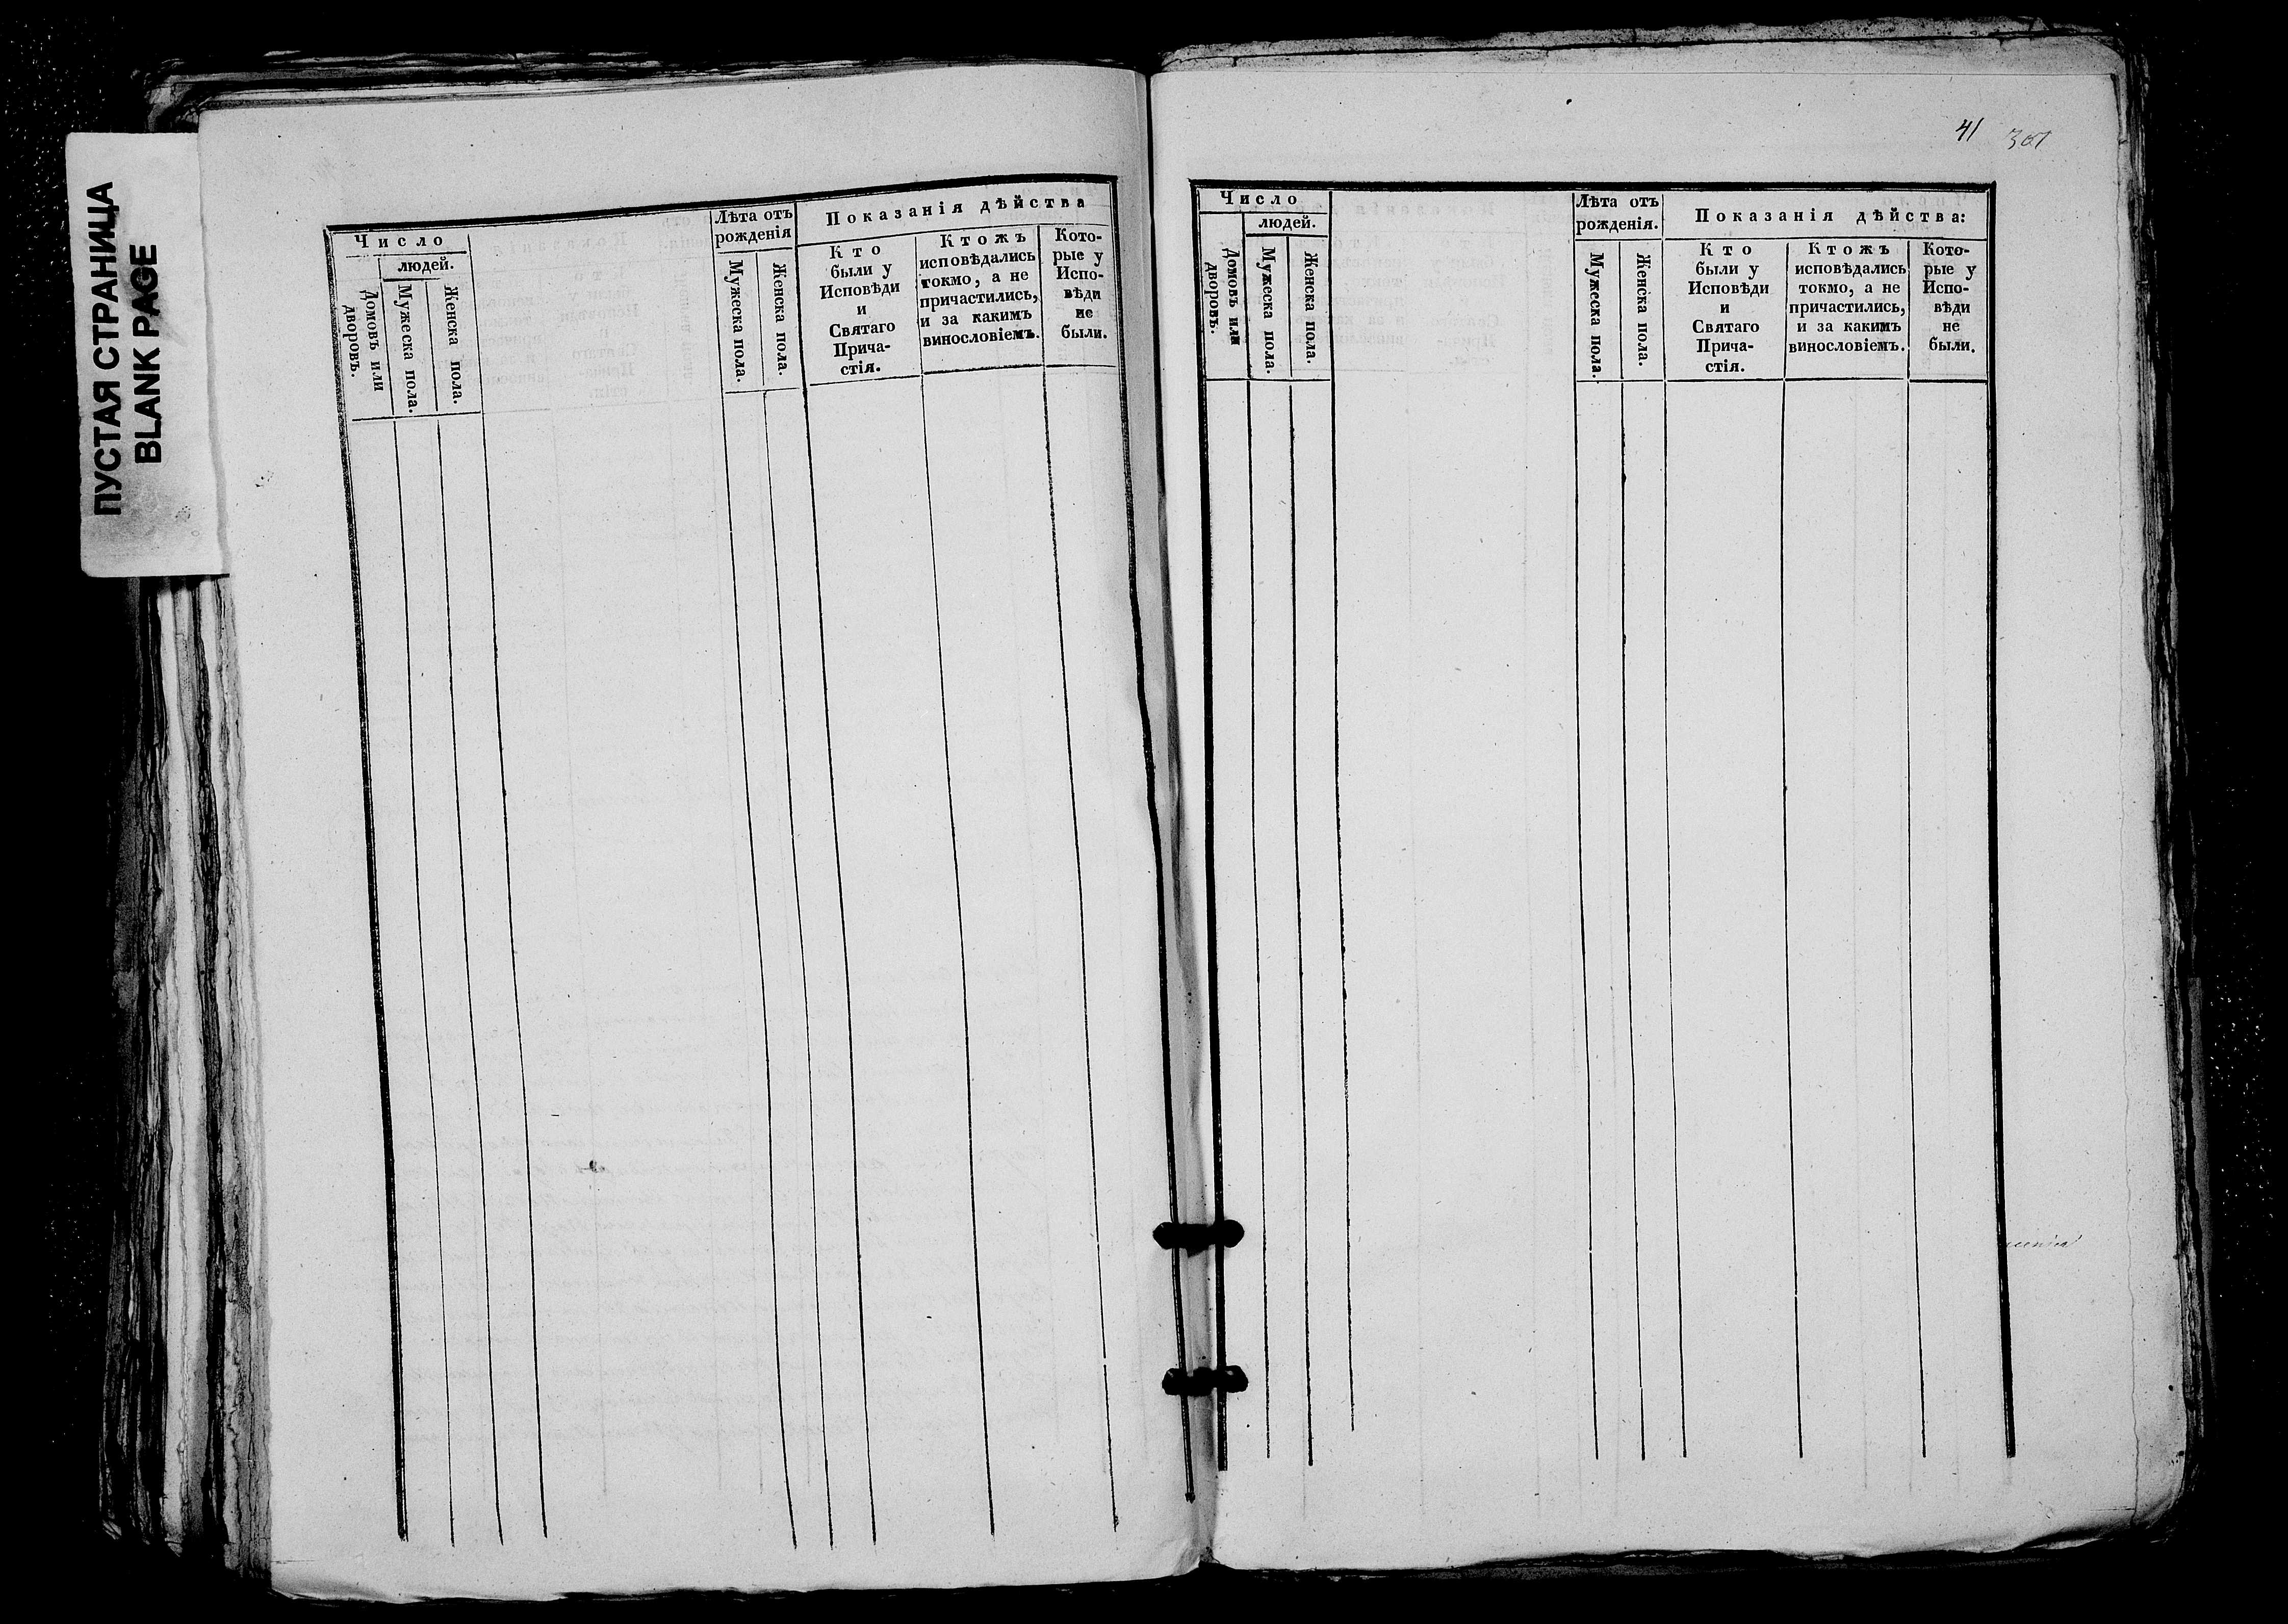 ПУСТАЯ СТРАНИЦА
BLANK PAGE
Число
людей.
Домовъ или
дворовъ.
Мужеска пола.
Женска пола.
Лѣта отъ
рожденія
Мужеска пола.
Женска пола.
Показанія дѣйства
Кто
были у
Исповѣди
и
Святаго
Прича-
стія.
Ктожъ
исповѣдались
токмо, а не
причастились,
и за какимъ
винословіемъ.
Кото-
рые у
Испо-
вѣди
не
были.
41
Число
людей.
Домовъ или
дворовъ.
Мужеска пола.
Женска пола.
Лѣта отъ
рожденія.
Мужеска пола.
Женска пола.
Показанія дѣйства:
Кто
были у
Исповѣди
и
Святаго
Прича-
стія.
Ктожъ
исповѣдались
токмо, а не
причастились,
и за какимъ
винословіемъ.
Кото-
рые у
Испо-
вѣди
не
были.